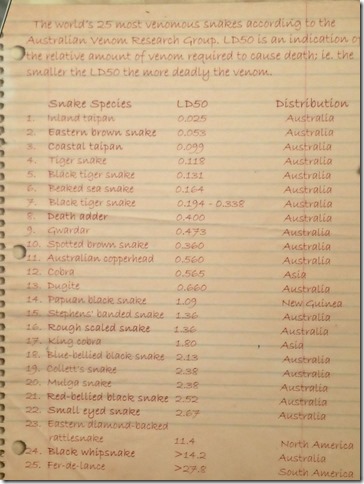 The world's 25 most venomous snakes according to the
Australian Venom Research Group. LD50 is an indication of
the relative amount of venom required to cause death; ie. the
smaller the LD50 the more deadly the venom..
Snake Species LD50 Distribution
1. Inland taipan 0.025 Australia
2. Eastern brown snake 0.053 Australia
3. Coastal taipan 0.099 Australia
4. Tiger snake 0.118 Australia
5. Black tiger snake 0.131 Australia
6. Beaked sea snake 0.164 Australia
7. Black tiger snake 0.194 - 0.338 Australia
8. Death adder 0.400 Australia
9. Gwardar 0.473 Australia
10. Spotted brown snake 0.360 Australia
11. Australian copperhead 0.560 Australia
12. Cobra 0.565 Asia
13. Dugite 0.660 Australia
14. Papuan black snake 1.09 New Guinea
15. Stephens' banded snake 1.36 Australia
16. Rough scaled snake 1.36 Australia
17. King cobra 1.80 Asia
18. Blue-bellied black snake 2.13 Australia
19. Collett's snake 2.38 Australia
20. Mulga snake 2.38 Australia
21. Red-bellied black snake 2.52 Australia
22. Small eyed snake 2.67 Australia
23. Eastern diamond-backed
rattlesnake 11.4 North America
24. Black whipsnake >14.2 Australia
25. Fer-de-lance >27.8 South America